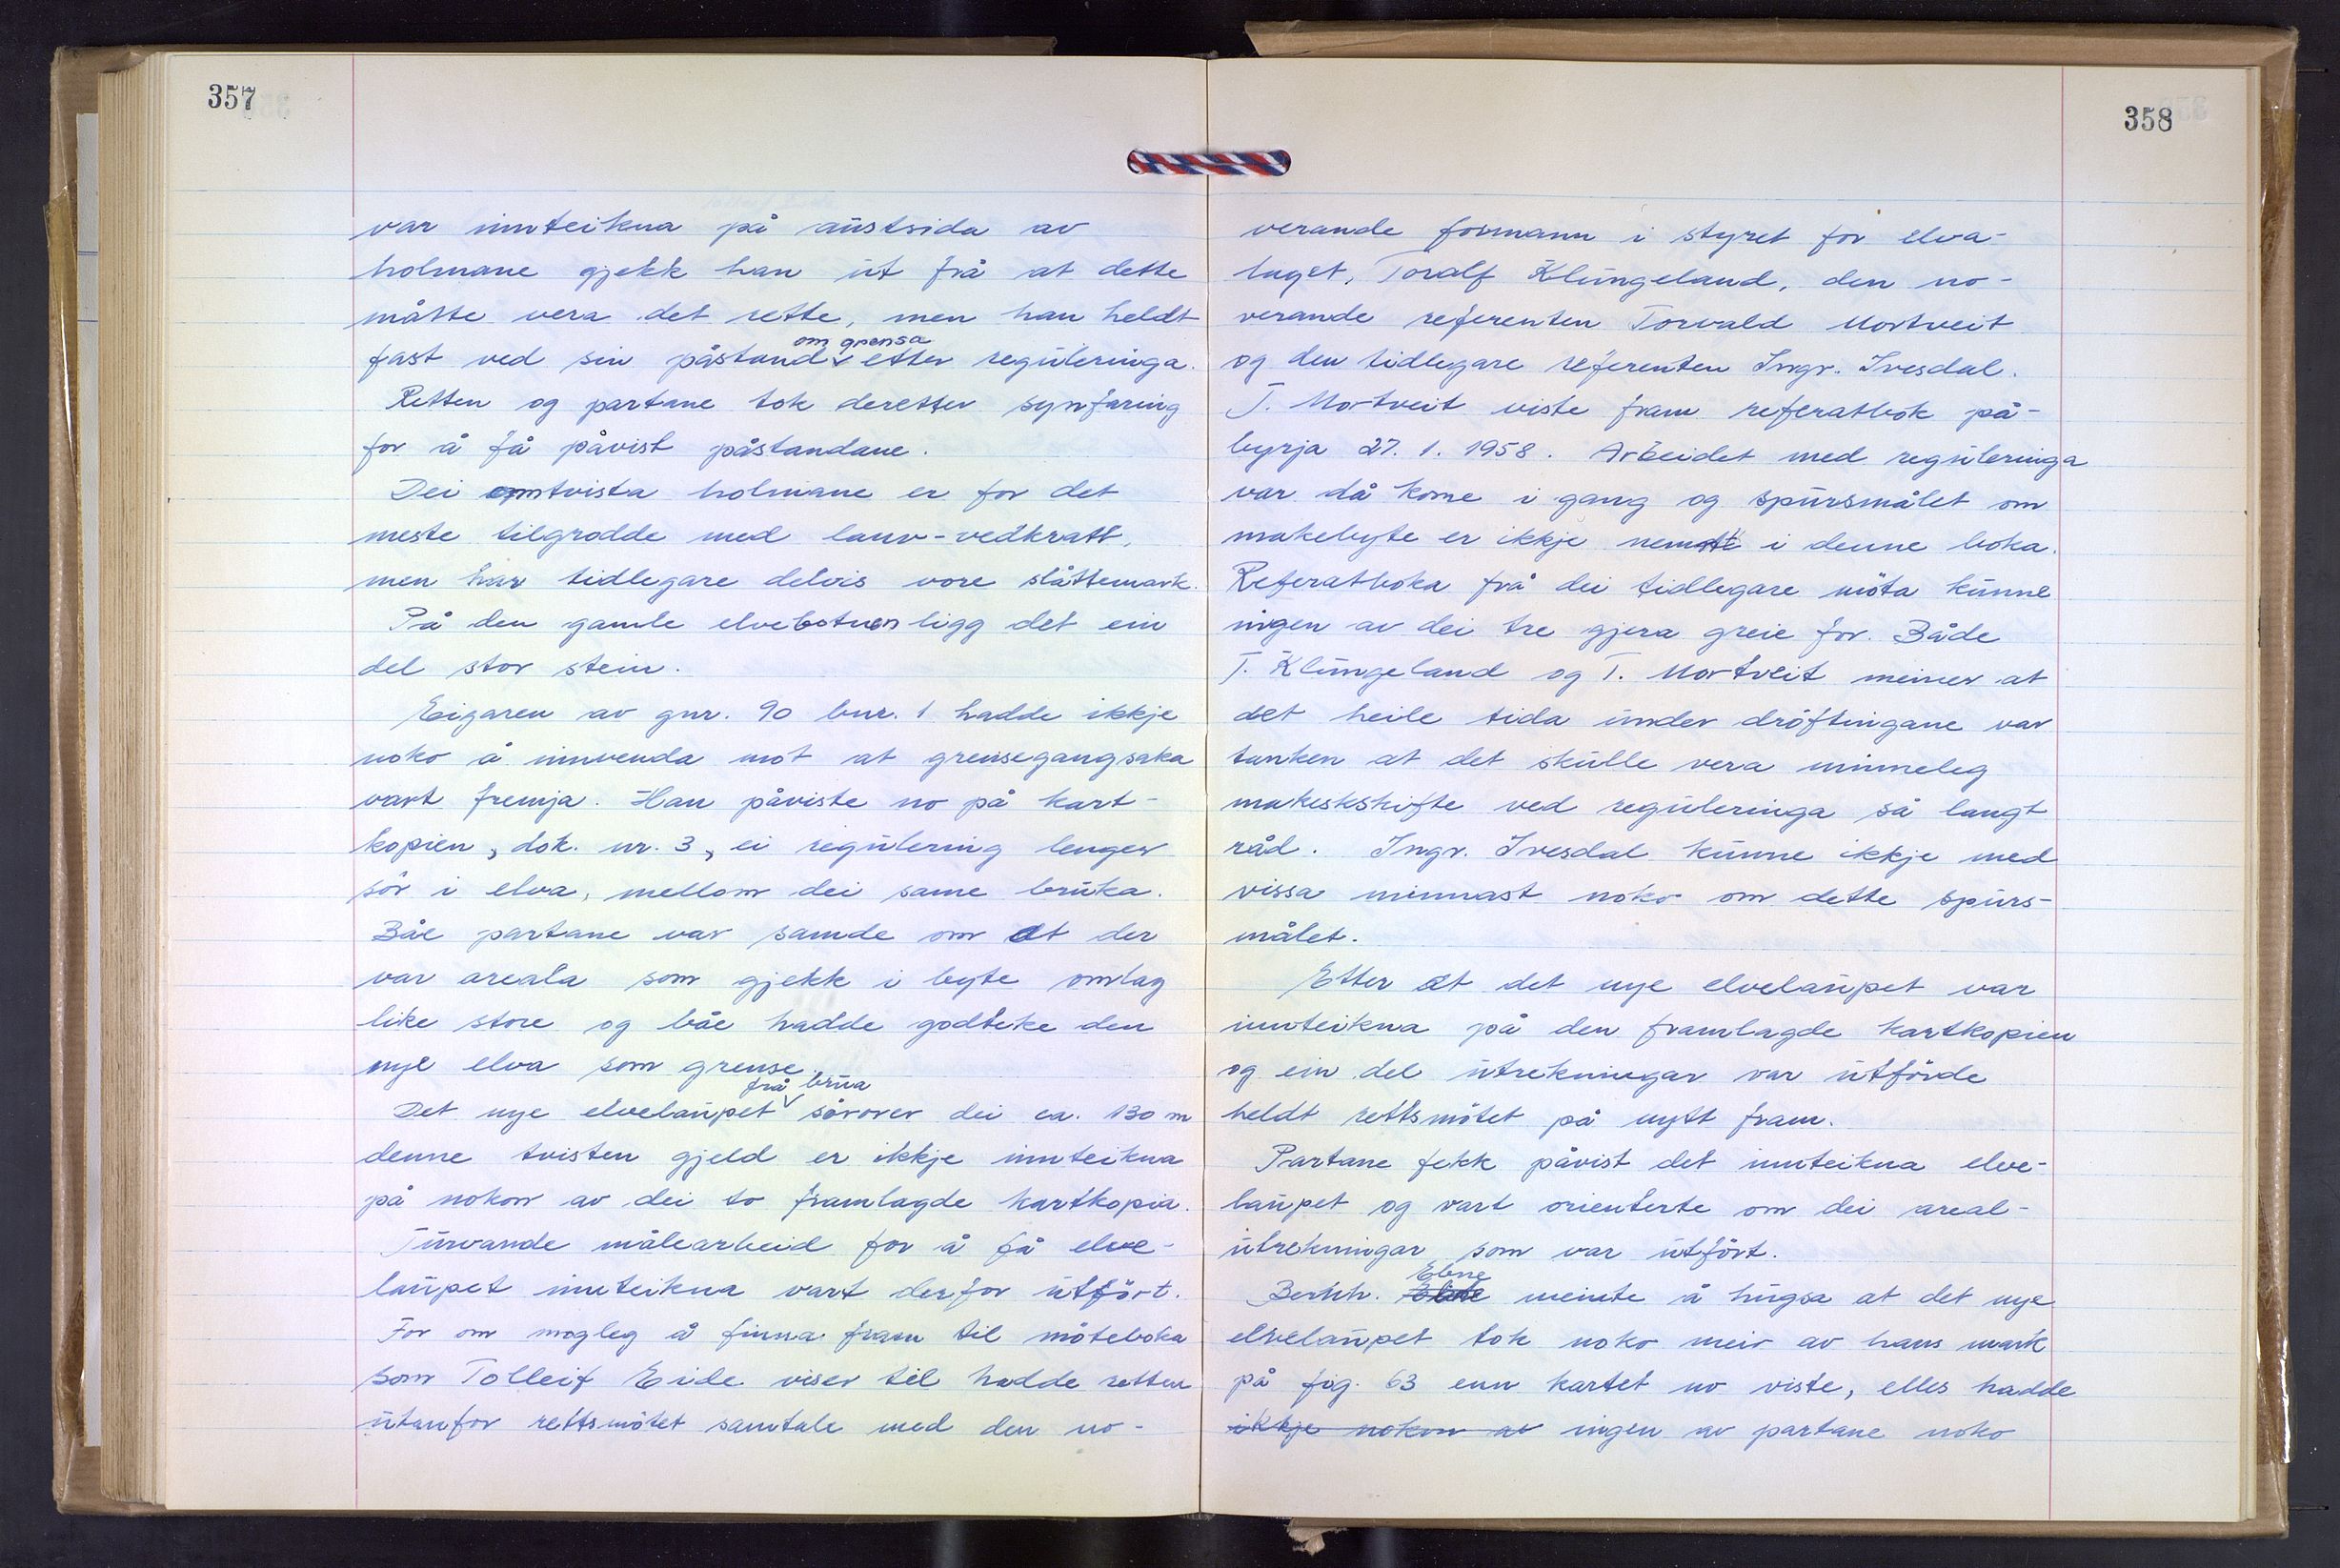 357
var innteikna på austsida av
holmane gjekk han ut frå at dette
måtte vera det rette, men han heldt
fast ved sin påstand om grensa etter reguleringa.
Retten og partane tok deretter synfaring
for å få påvist påstandane.
Dei omtvista holmane er for det
meste tilgrodde med lauv-vedkratt,
men har tidlegare delvis vore slåttemark.
På den gamle elvebotnen ligg det ein
del stor stein.
Eigaren av gnr. 90 bnr. 1 hadde ikkje
noko å innvenda mot at grensegangsaka
vart fremja. Han påviste no på kart-
kopien, dok. nr. 3, ei regulering lenger
sör i elva, mellom dei same bruka.
Båe partane var samde om at der
var areala som gjekk i byte omlag
like store og båe hadde godteke den
nye elva som grense.
Det nye elvelaupet frå brua sörover dei ca. 130 m
denne tvisten gjeld er ikkje innteikna
på nokon av dei to framlagde kartkopia.
Turvande målearbeid for å få elve-
laupet innteikna vart derfor utfört.
For om mogleg å finna fram til möteboka
som Tolleif Eide viser til hadde retten
utanfor rettsmötet samtale med den no-
358
verande formann i styret for elva-
laget, Toralf Klungeland, den no-
verande referenten Torvald Mortveit
og den tidlegare referenten Ingv. Ivesdal.
T. Mortveit viste fram referatbok på-
byrja 27. 1. 1958. Arbeidet med reguleringa
var då kome i gang og spursmålet om
makebyte er ikkje nemnt i denne boka.
Referatboka frå dei tidlegare möta kunne
ingen av dei tre gjera greie for. Både
T. Klungeland og T. Mortveit meiner at
det heile tida under dröftingane var
tanken at det skulle vera minneleg
makeskskifte ved reguleringa så langt
råd. Ingv. Ivesdal kunne ikkje med
vissa minnast noko om dette spurs-
målet.
Etter at det nye elvelaupet var
innteikna på den framlagde kartkopien
og ein del utrekningar var utförde
heldt rettsmötet på nytt fram.
Partane fekk påvist det innteikna elve-
laupet og vart orienterte om dei areal-
utrekningar som var utfört.
Berhh. Ebne meinte å hugsa at det nye
elvelaupet tok noko meir av hans mark
på fig. 63 enn kartet no viste, elles hadde
ikkje nokon av ingen av partane noko